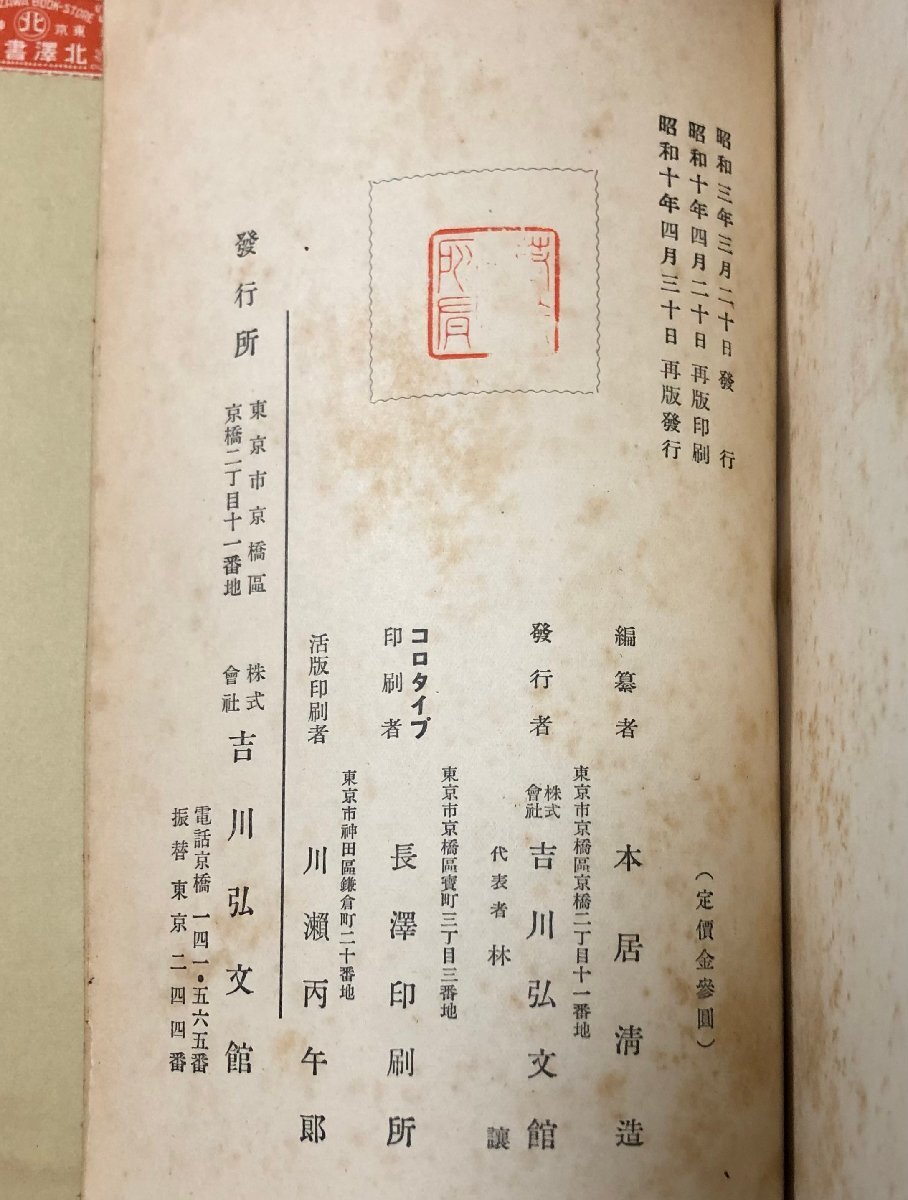 昭和三年三月二十日發行
昭和十年四月二十日再版印刷
昭和十年四月三十日再版發行
(定價金參圓)
編纂者 本居淸造
東京市京橋區京橋二丁目十一番地
發行者 株式會社 吉川弘文館
代表者 林 讓
東京市京橋區寶町三丁目三番地
コロタイプ
印刷者 長澤印刷所
東京市神田區鎌倉町二十番地
活版印刷者 川瀨丙午郞
發行所
東京市京橋區
京橋二丁目十一番地
株式會社 吉川弘文館
電話京橋 一四一・五六五番
振替東京二四四番
BOOK-STORE
北
東京
北澤書